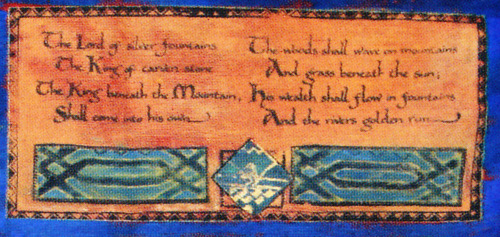 The Lord of silver fountains
The King of carven stone
The King beneath the Mountain,
Shall come into his own
The woods shall wave on mountains
And grass beneath the sun;
His wealth shall flow in fountains
And the rivers golden run